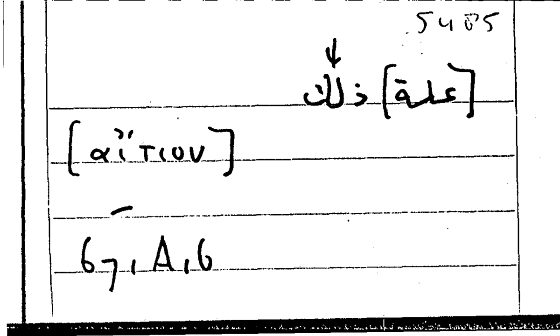 5405
[علة] ذلك
[αἴτιον]
67, A, 6